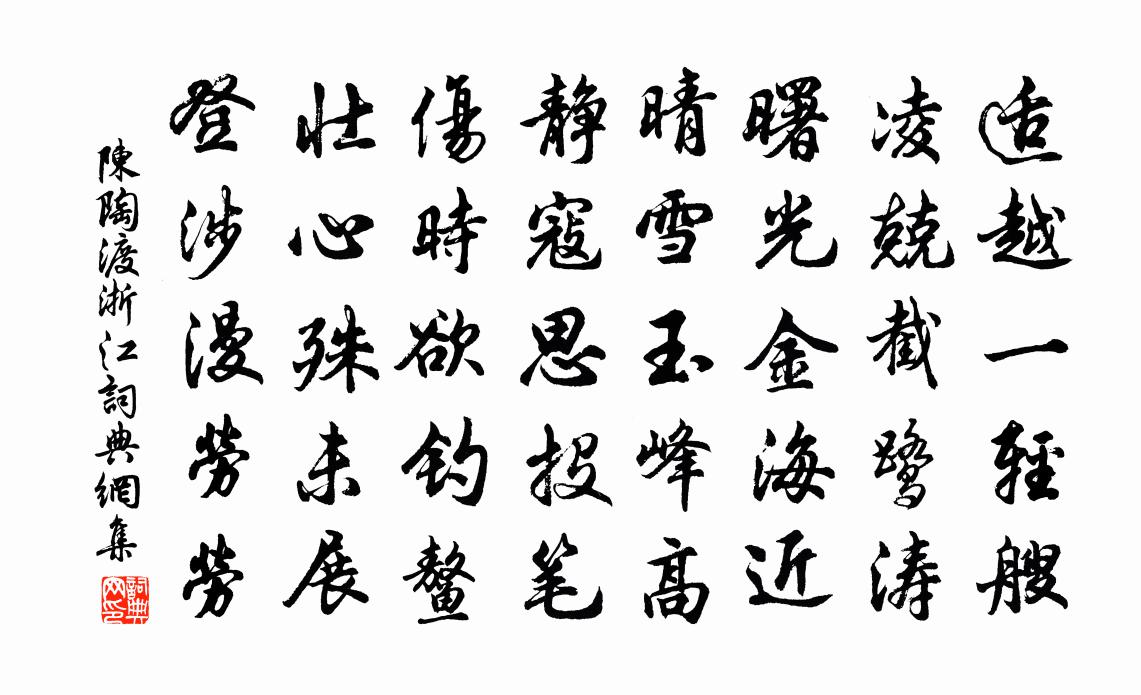 适越一輕艘
凌兢截鷺濤
曙光金海近
晴雪玉峰高
静寇思投笔
傷時欲釣鰲
壯心殊未展
登涉漫勞勞
陳陶渡浙江詞典網集
詞典网印